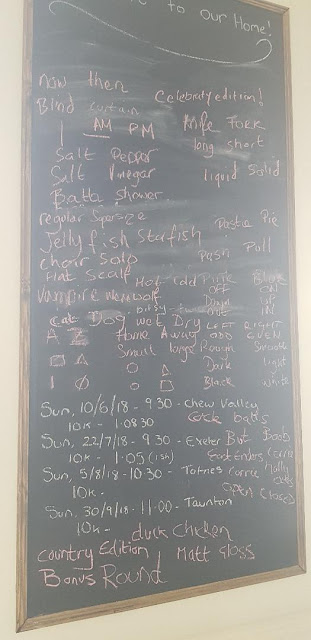 to our Home!
now then
Celebrity edition!
Blind curtain
AM PM Knife Fork
long short
Salt Pepper
Salt Vinegar liquid Solid
Bath Shower
regular Supersize
Pastie Pie
Jellyfish Starfish
Push Pull
choir Solo
Hat Scarf Hot cold Pink Blue
OFF ON
vampire werewolf Down UP
bitsy OUT IN
Cat Dog Wet Dry LEFT RIGHT
A Z Home Away ODD EVEN
Small large Rough Smooth
Dark Light
Black White
Sun, 10/6/18 - 9 30 - Chew Valley
10K - 1.08.30 Cock balls
Sun, 22/7/18 - 9.30 - Exeter But Boobs
10K - 1.05 (ish) Eastenders Corrie
Sun, 5/8/18 - 10.30 - Totnes Corrie Holly
10K - oaks
Open Closed
Sun, 30/9/18 - 11:00 - Taunton
10K -
duck Chicken
Country Edition Matt Gloss
Bonus Round